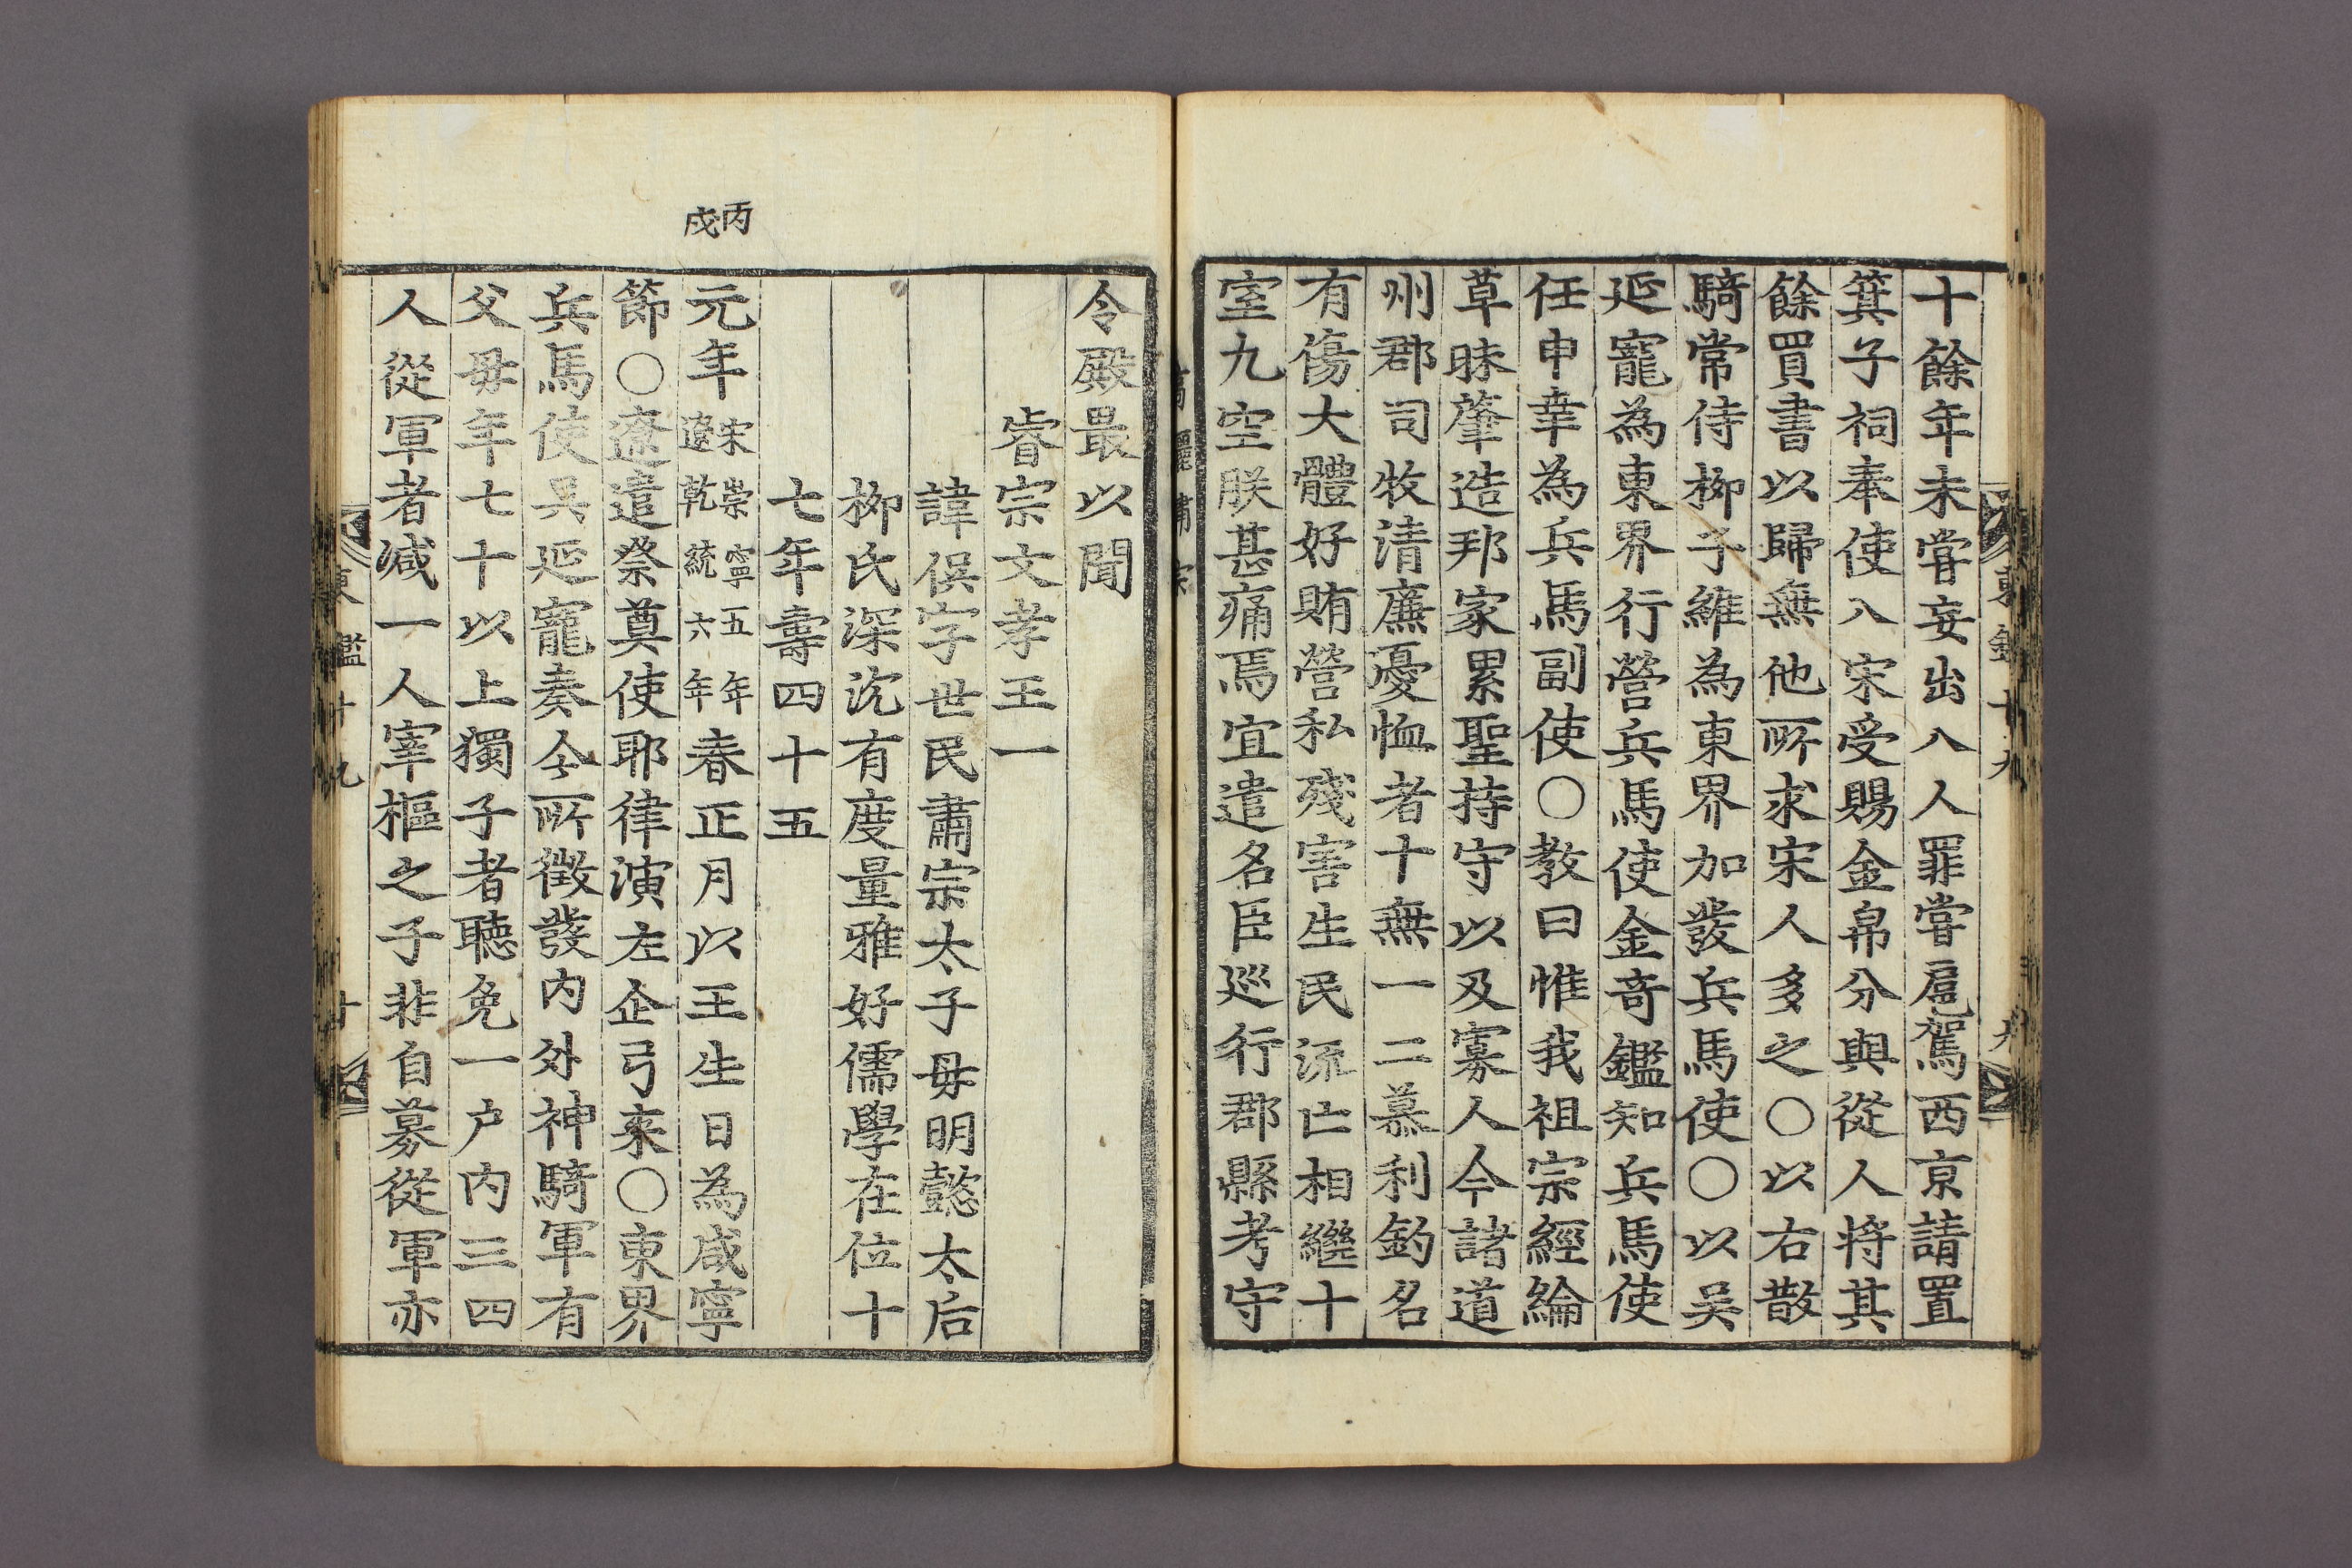 十餘年未嘗妄出入人罪嘗扈駕西京請置
箕子祠奉使入宋受賜金帛分與從人將其
餘買書以歸無他所求宋人多之〇以右散
騎常侍柳子維為東界加發兵馬使〇以吴
延寵為東界行營兵馬使金奇鑑知兵馬使
任申幸為兵馬副使〇教曰惟我祖宗經綸
草昧肇造邦家累聖持守以及寡人今諸道
州郡司牧清廉憂恤者十無一二慕利釣名
有傷大體好賄營私殘害生民流亡相繼十
室九空朕甚痛焉宜遣名臣巡行郡縣考守
令殿最以聞
睿宗文孝王一
諱俁字世民肅宗太子母明懿太后
柳氏深沈有度量雅好儒學在位十
七年壽四十五
丙戌
元年宋崇寧五年遼乾統六年春正月以王生日為咸寧
節〇遼遣祭奠使耶律演左企弓來〇東界
兵馬使吴延寵奏今所徵發內外神騎軍有
父母年七十以上獨子者聽免一户內三四
人從軍者减一人宰樞之子非自募從軍亦
東鑑十九
十